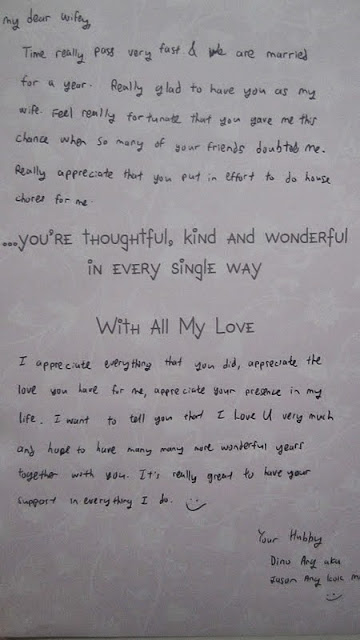 My dear wifey,
Time really pass very fast & we are married
for a year. Really glad to have you as my
wife. Feel really fortunate that you gave me this
chance when so many of your friends doubted me.
Really appreciate that you put in effort to do house
chores for me.
...YOU'RE THOUGHTFUL, KIND AND WONDERFUL
IN EVERY SINGLE WAY
WITH ALL MY LOVE
I appreciate everything that you did, appreciate the
love you have for me, appreciate your presence in my
life. I want to tell you that I Love U very much
and hope to have many many more wonderful years
together with you. It's really great to have your
support in everything I do.
Your Hubby
Dino Ang aka
Jason Ang